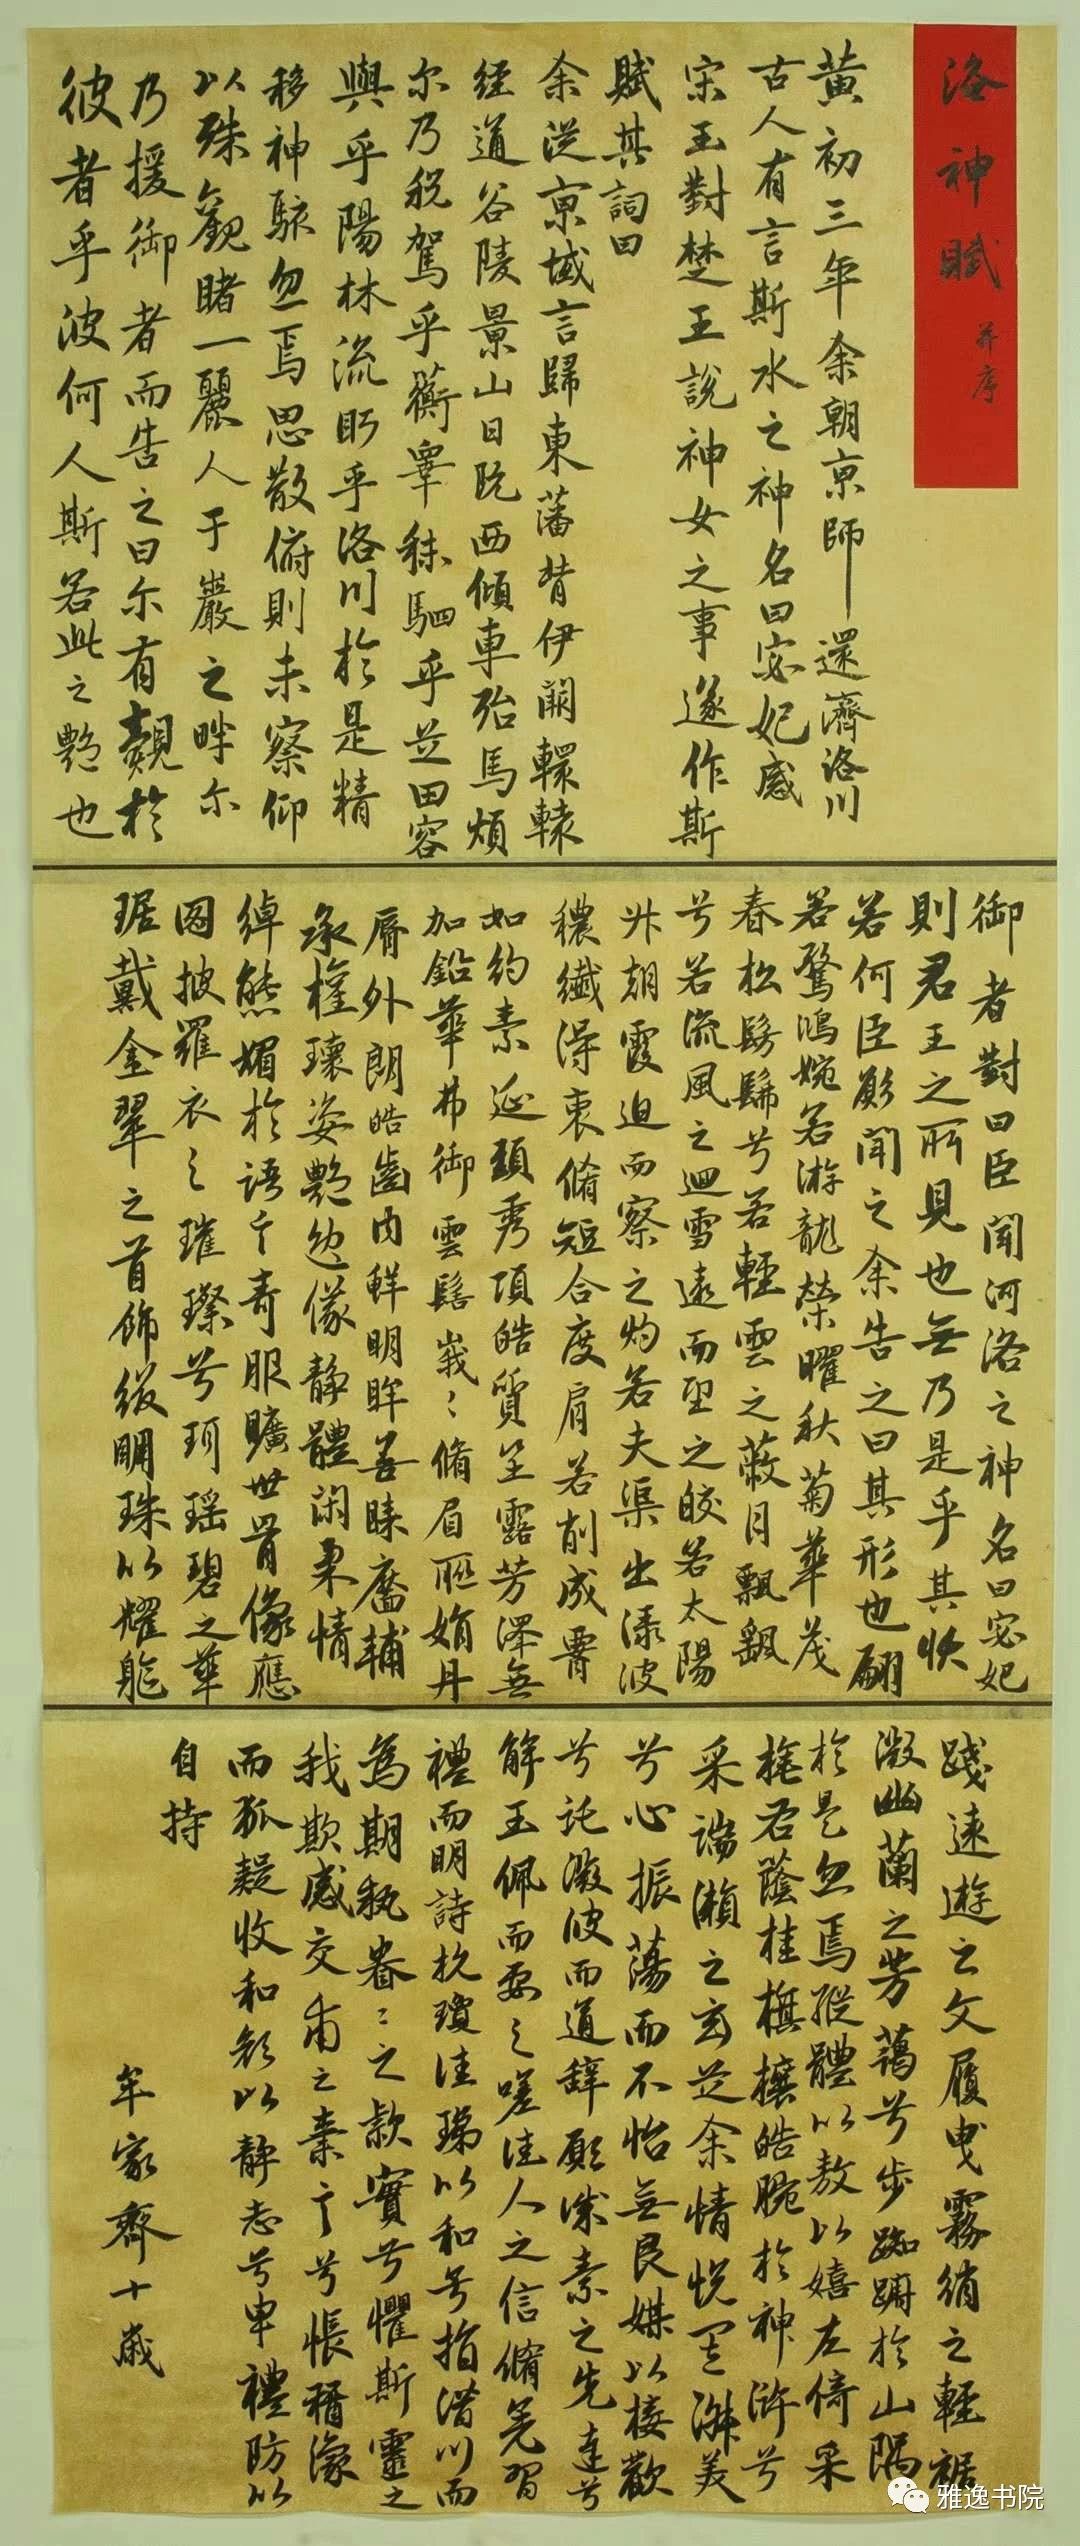 洛神賦 并序
黄初三年余朝京師還濟洛川
古人有言斯水之神名曰宓妃感
宋玉對楚王說神女之事遂作斯
賦其詞曰
余從京域言歸東藩背伊闕轘轅
經道谷陵景山日既西傾車殆馬煩
尔乃税駕乎蘅皋秣駟乎芝田容
與乎陽林流眄乎洛川於是精
移神駭忽焉思散俯則未察仰
以殊觀睹一麗人于巖之畔尔
乃援御者而告之曰尔有觀於
彼者乎波何人斯若此之艷也
御者對曰臣聞河洛之神名曰宓妃
則君王之所見也無乃是乎其狀
若何臣願聞之余告之曰其形也翩
若驚鴻婉若游龍榮曜秋菊華茂
春松髣髴兮若輕雲之蔽月飄飖
兮若流風之迴雪遠而望之皎若太陽
升朝霞迫而察之灼若夫渠出渌波
穠纖得衷脩短合度肩若削成𦝫
如約素延頸秀項皓質呈露芳澤無
加鉛華弗御雲髻峩〻脩眉聯娟丹
脣外朗皓齒内鮮明眸善睞靨輔
承權瓌姿艷逸儀静體闲柔情
綽態媚於語言奇服曠世骨像應
圖披羅衣之璀璨兮珥瑶碧之華
琚戴金翠之首飾綴明珠以耀軀
踐遠遊之文履曳霧綃之輕裾
微幽蘭之芳藹兮步踟躕於山隅
於是忽焉縱體以敖以嬉左倚采
旄右蔭桂旗攘皓腕於神滸兮
采湍瀨之玄芝余情悦其淑美
兮心振蕩而不怡無良媒以接歡
兮託微波而道辭願誠素之先達兮
解玉佩而要之嗟佳人之信脩羌習
禮而明詩抗瓊珶以和兮指潜川而
為期執眷〻之款實兮懼斯靈之
我欺感交甫之棄言兮悵猶豫
而狐疑收和顔以静志兮申禮防以
自持
牟家齊十歲
雅逸书院